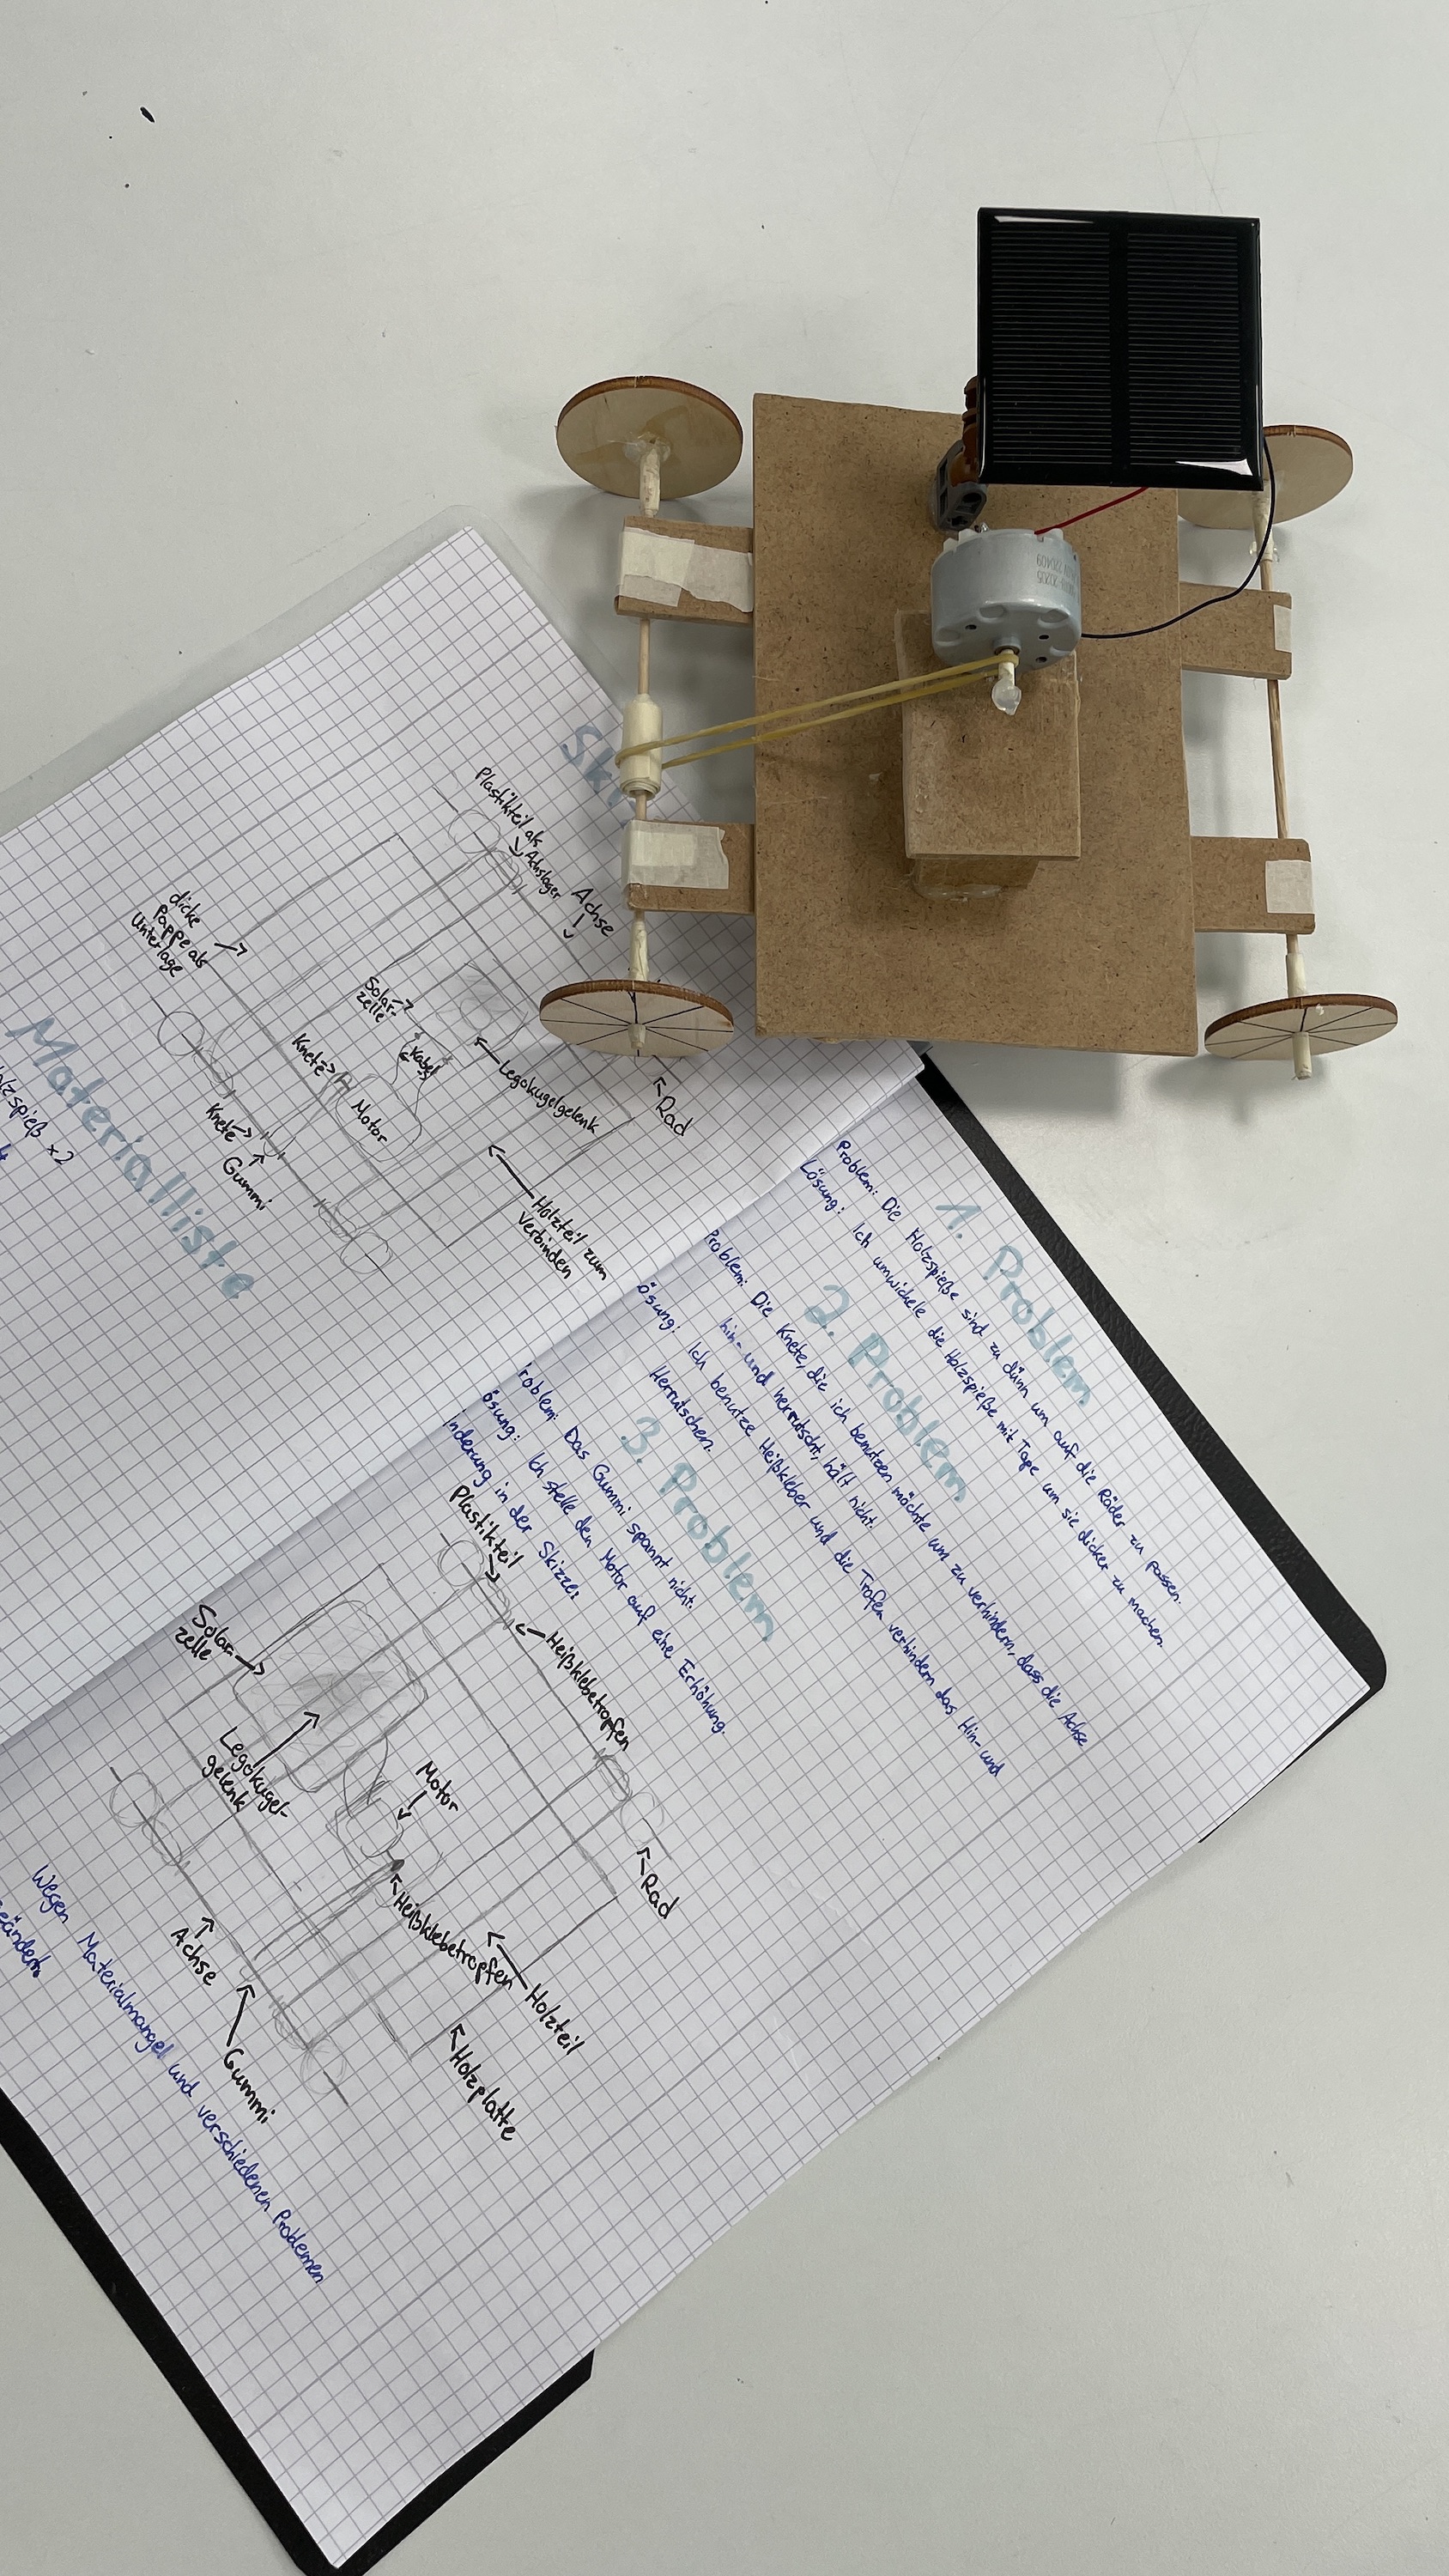 dicke
Pappe als
Unterlage
Plastikteil als
Achslager
Achse
Solar-
zelle
Kabel
Knete
Motor
Legokugelgelenk
Rad
Knete
Gummi
Holzteil zum
Verbinden
Materialliste
x2
1. Problem
Problem: Die Holzspieße sind zu dünn um auf die Räder zu passen.
Lösung: Ich umwickele die Holzspieße mit Tape um sie dicker zu machen.
2. Problem
Problem: Die Knete, die ich benutzen möchte um zu verhindern, dass die Achse
hin- und herrutscht, hält nicht.
ösung: Ich benutze Heißkleber und die Trofen verhindern das Hin- und
Herrutschen.
3. Problem
roblem: Das Gummi spannt nicht.
ösung: Ich stelle den Motor auf eine Erhöhung.
nderung in der Skizze:
Plastikteil
Heißklebetropfen
Solar-
zelle
Legokugel-
gelenk
Motor
Rad
Heißklebetropfen
Achse
Gummi
Holzteil
Holzplatte
Wegen Materialmangel und verschiedenen Problemen
eändert.